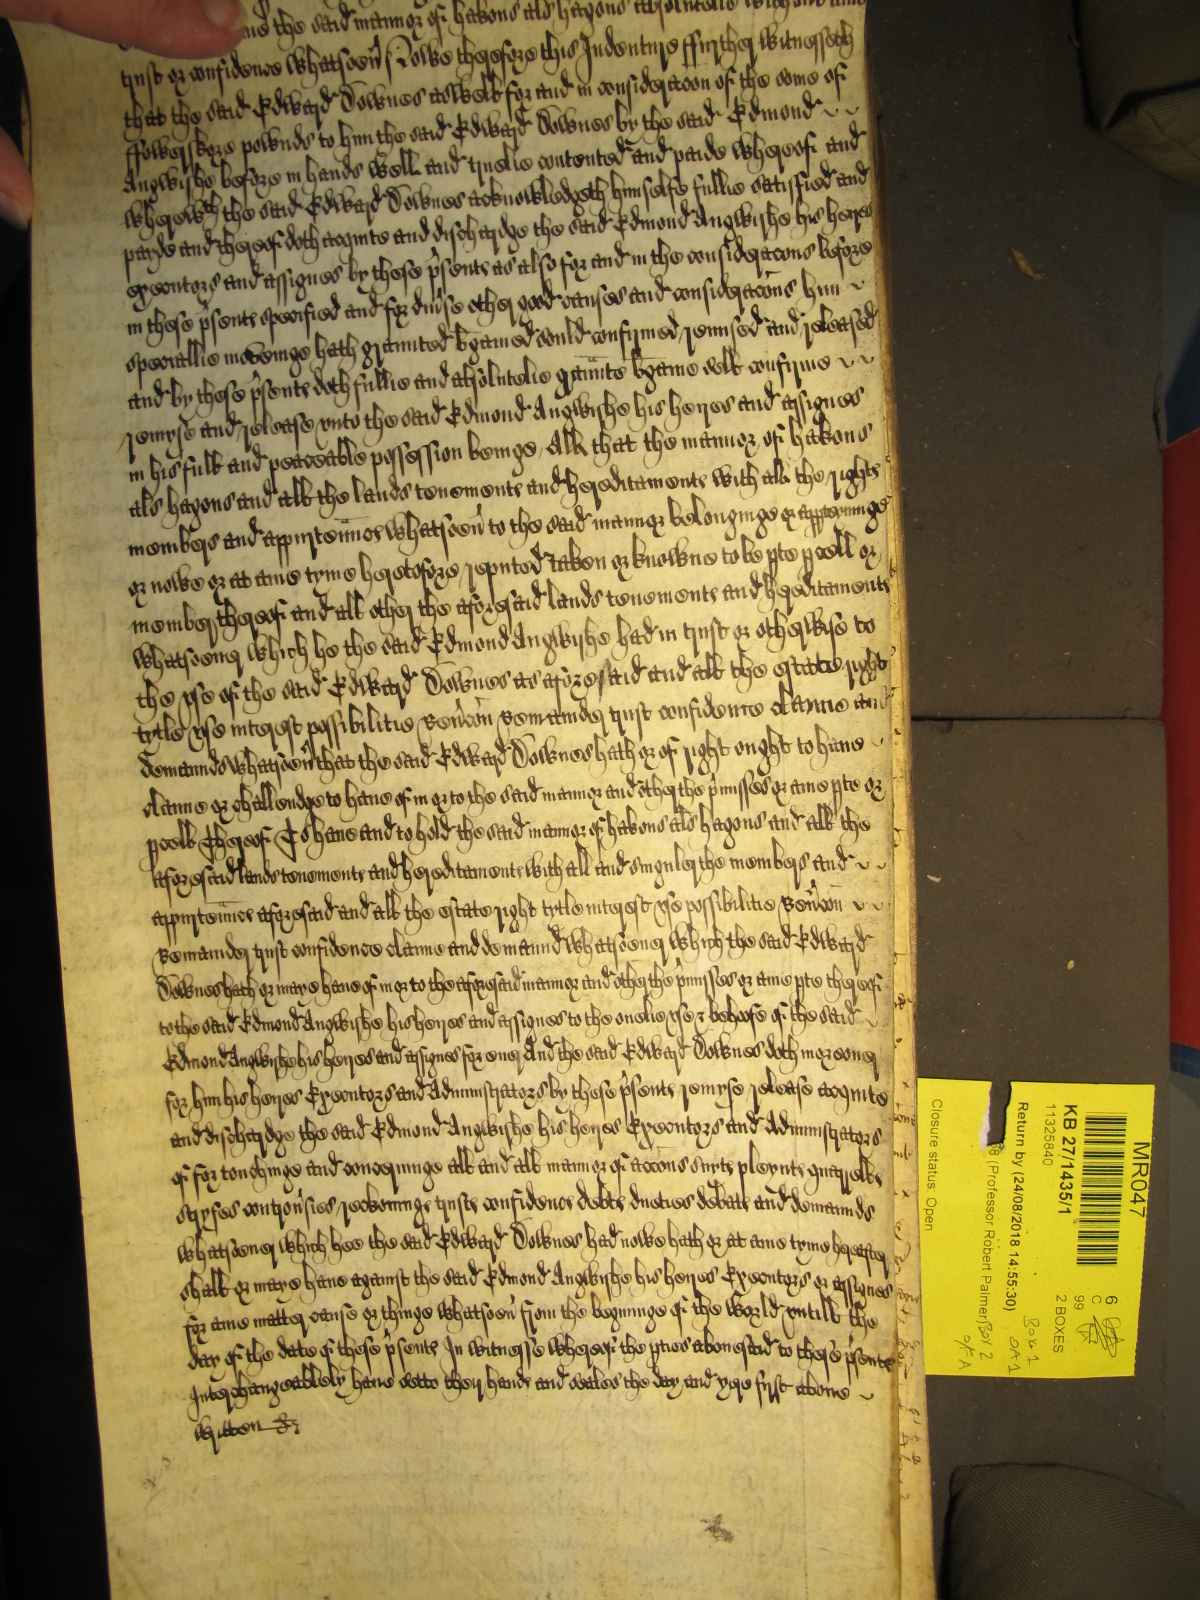 the said mannor of hakons als hagons absolutelie without anie
trust or confidence whatsoeu' Nowe therefore this Indenture ffurther witnesseth
that the said Edward Downes aswell for and in consideracon of the some of
ffowerskore pownds to him the said Edward Downes by the said Edmond
Angwishe before in hands well and truelie contented and paide whereof and
wherewth the said Edward Downes acknowledgeth himselfe fullie satisfied and
payde and thereof doth acquite and discharge the said Edmond Angwishe his heyres
executors and assignes by these p'sents as also for and in the consideracons before
in these p'sents specified and for diu'se other good causes and consideracons him
speciallie moveinge hath graunted bargained sould confirmed remised and released
and by these p'sents doth fullie and absolutelie graunte bargaine sell confirme
remyse and release vnto the said Edmond Angwishe his heyres and assignes
in his full and peaceable possession beinge All that the mannor of hakons
als hagons and all the lands tenements and hereditaments with all the rights
members and appurtenncs whatsoeu' to the said mannor belonginge or apperteyninge
or nowe or at anie tyme heretofore reputed taken or knowne to be pte pcell or
member thereof and all other the aforesaid lands tenements and hereditaments
whatsoeuer which he the said Edmond Angwishe had in trust or otherwise to
the vse of the said Edward Downes as aforesaid and all the estate right
tytle vse interest possibilitie Reu'con Remainder trust confidence clayme and
demaunds whatsoeu' that the said Edward Downes hath or of right ought to haue
clayme or challendge to haue of in or to the said mannor and other the p'misses or anie pte or
pcell thereof To haue and to hold the said mannor of hakons als hagons and all the
aforesaid lands tenements and hereditaments with all and singuler the members and
appurtenncs aforesaid and all the estate right tytle interest vse possibilitie Reu'con
Remainder trust confidence clayme and demaund whatsoeuer which the said Edward
Downes hath or maye haue of in or to the aforesaid mannor and other the p'misses or anie pte thereof
to the said Edmond Angwishe his heyres and assignes to the onelie vse & behoofe of the said
Edmond Angwishe his heyres and assignes for euer And the said Edward Downes doth moreouer
for him his heyres Executors and Administrators by these p'sents remyse release acquite
and discharge the said Edmond Angwishe his heyres Executors and Administrators
of for touchinge and concerninge all and all mannor of accons suits pleynts quarrells
stryfes controu'sies reckonings trusts confidence debts dueties debate and demaunds
whatsoeuer which hee the said Edward Downes had nowe hath or at anie tyme hereafter
shall or maye haue against the said Edmond Angwishe his heyres Executors or assignes
for anie matter cause or thinge whatsoeu' from the beginninge of the world vntill the
day of the date of these p'sents In witnesse whereof the pties abouesaid to these p'sents
Interchangeablely haue sette their hands and seales the day and yere fyrst aboue
written &c
MR047
KB 27/1435/1
11325840
Return by (24/08/2018 14:55:30)
(Professor Robert Palmer)
Closure status: Open
6
C
99
2 BOXES
Box 1
Box 2